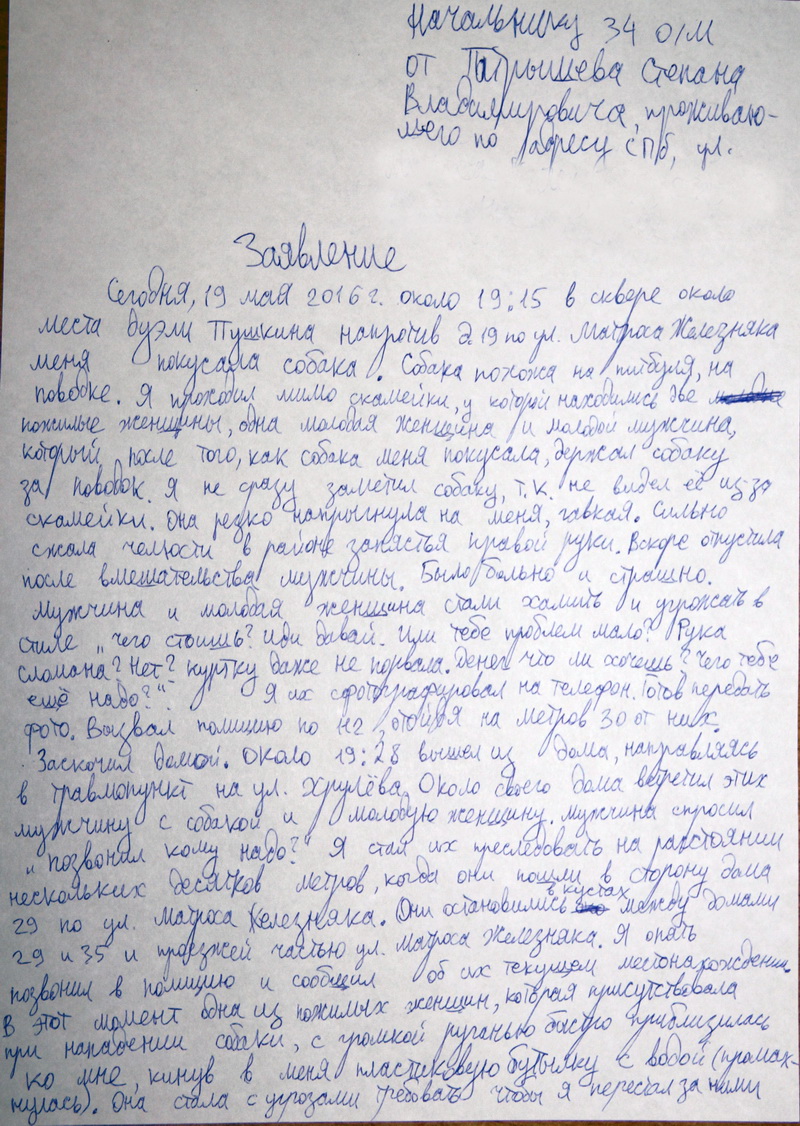 Начальнику 34 о/м
от Патрышева Степана
Владимировича, проживаю-
щего по адресу СПб, ул.
Заявление
Сегодня, 19 мая 2016 г. около 19:15 в сквере около
места дуэли Пушкина напротив д.19 по ул. Матроса Железняка
меня покусала собака. Собака похожа на питбуля, на
поводке. Я проходил мимо скамейки, у которой находились две
пожилые женщины, одна молодая женщина и молодой мужчина,
который, после того, как собака меня покусала, держал собаку
за поводок. Я не сразу заметил собаку, т.к. не видел её из-за
скамейки. Она резко напрыгнула на меня, гавкая. Сильно
сжала челюсти в районе запястья правой руки. Вскоре отпустила
после вмешательства мужчины. Было больно и страшно.
Мужчина и молодая женщина стали хамить и угрожать в
стиле „чего стоишь? Иди давай. Или тебе проблем мало? Рука
сломана? Нет? Куртку даже не порвала. Денег что ли хочешь? Чего тебе
ещё надо?“. Я их сфотографировал на телефон. Готов передать
фото. Вызвал полицию по 112, отойдя на метров 30 от них.
Заскочил домой. Около 19:28 вышел из дома, направляясь
в травмпункт на ул. Хрулёва. Около своего дома встретил этих
мужчину с собакой и молодую женщину. Мужчина спросил
„позвонил кому надо?“ Я стал их преследовать на расстоянии
нескольких десятков метров, когда они пошли в сторону дома
29 по ул. Матроса Железняка. Они остановились в кустах между домами
29 и 35 и проезжей частью ул. Матроса Железняка. Я опять
позвонил в полицию и сообщил об их текущем местонахождении.
В этот момент одна из пожилых женщин, которая присутствовала
при нападении собаки, с громкой руганью быстро приблизилась
ко мне, кинув в меня пластиковую бутылку с водой (промах-
нулась). Она стала с угрозами требовать чтобы я перестал за ними